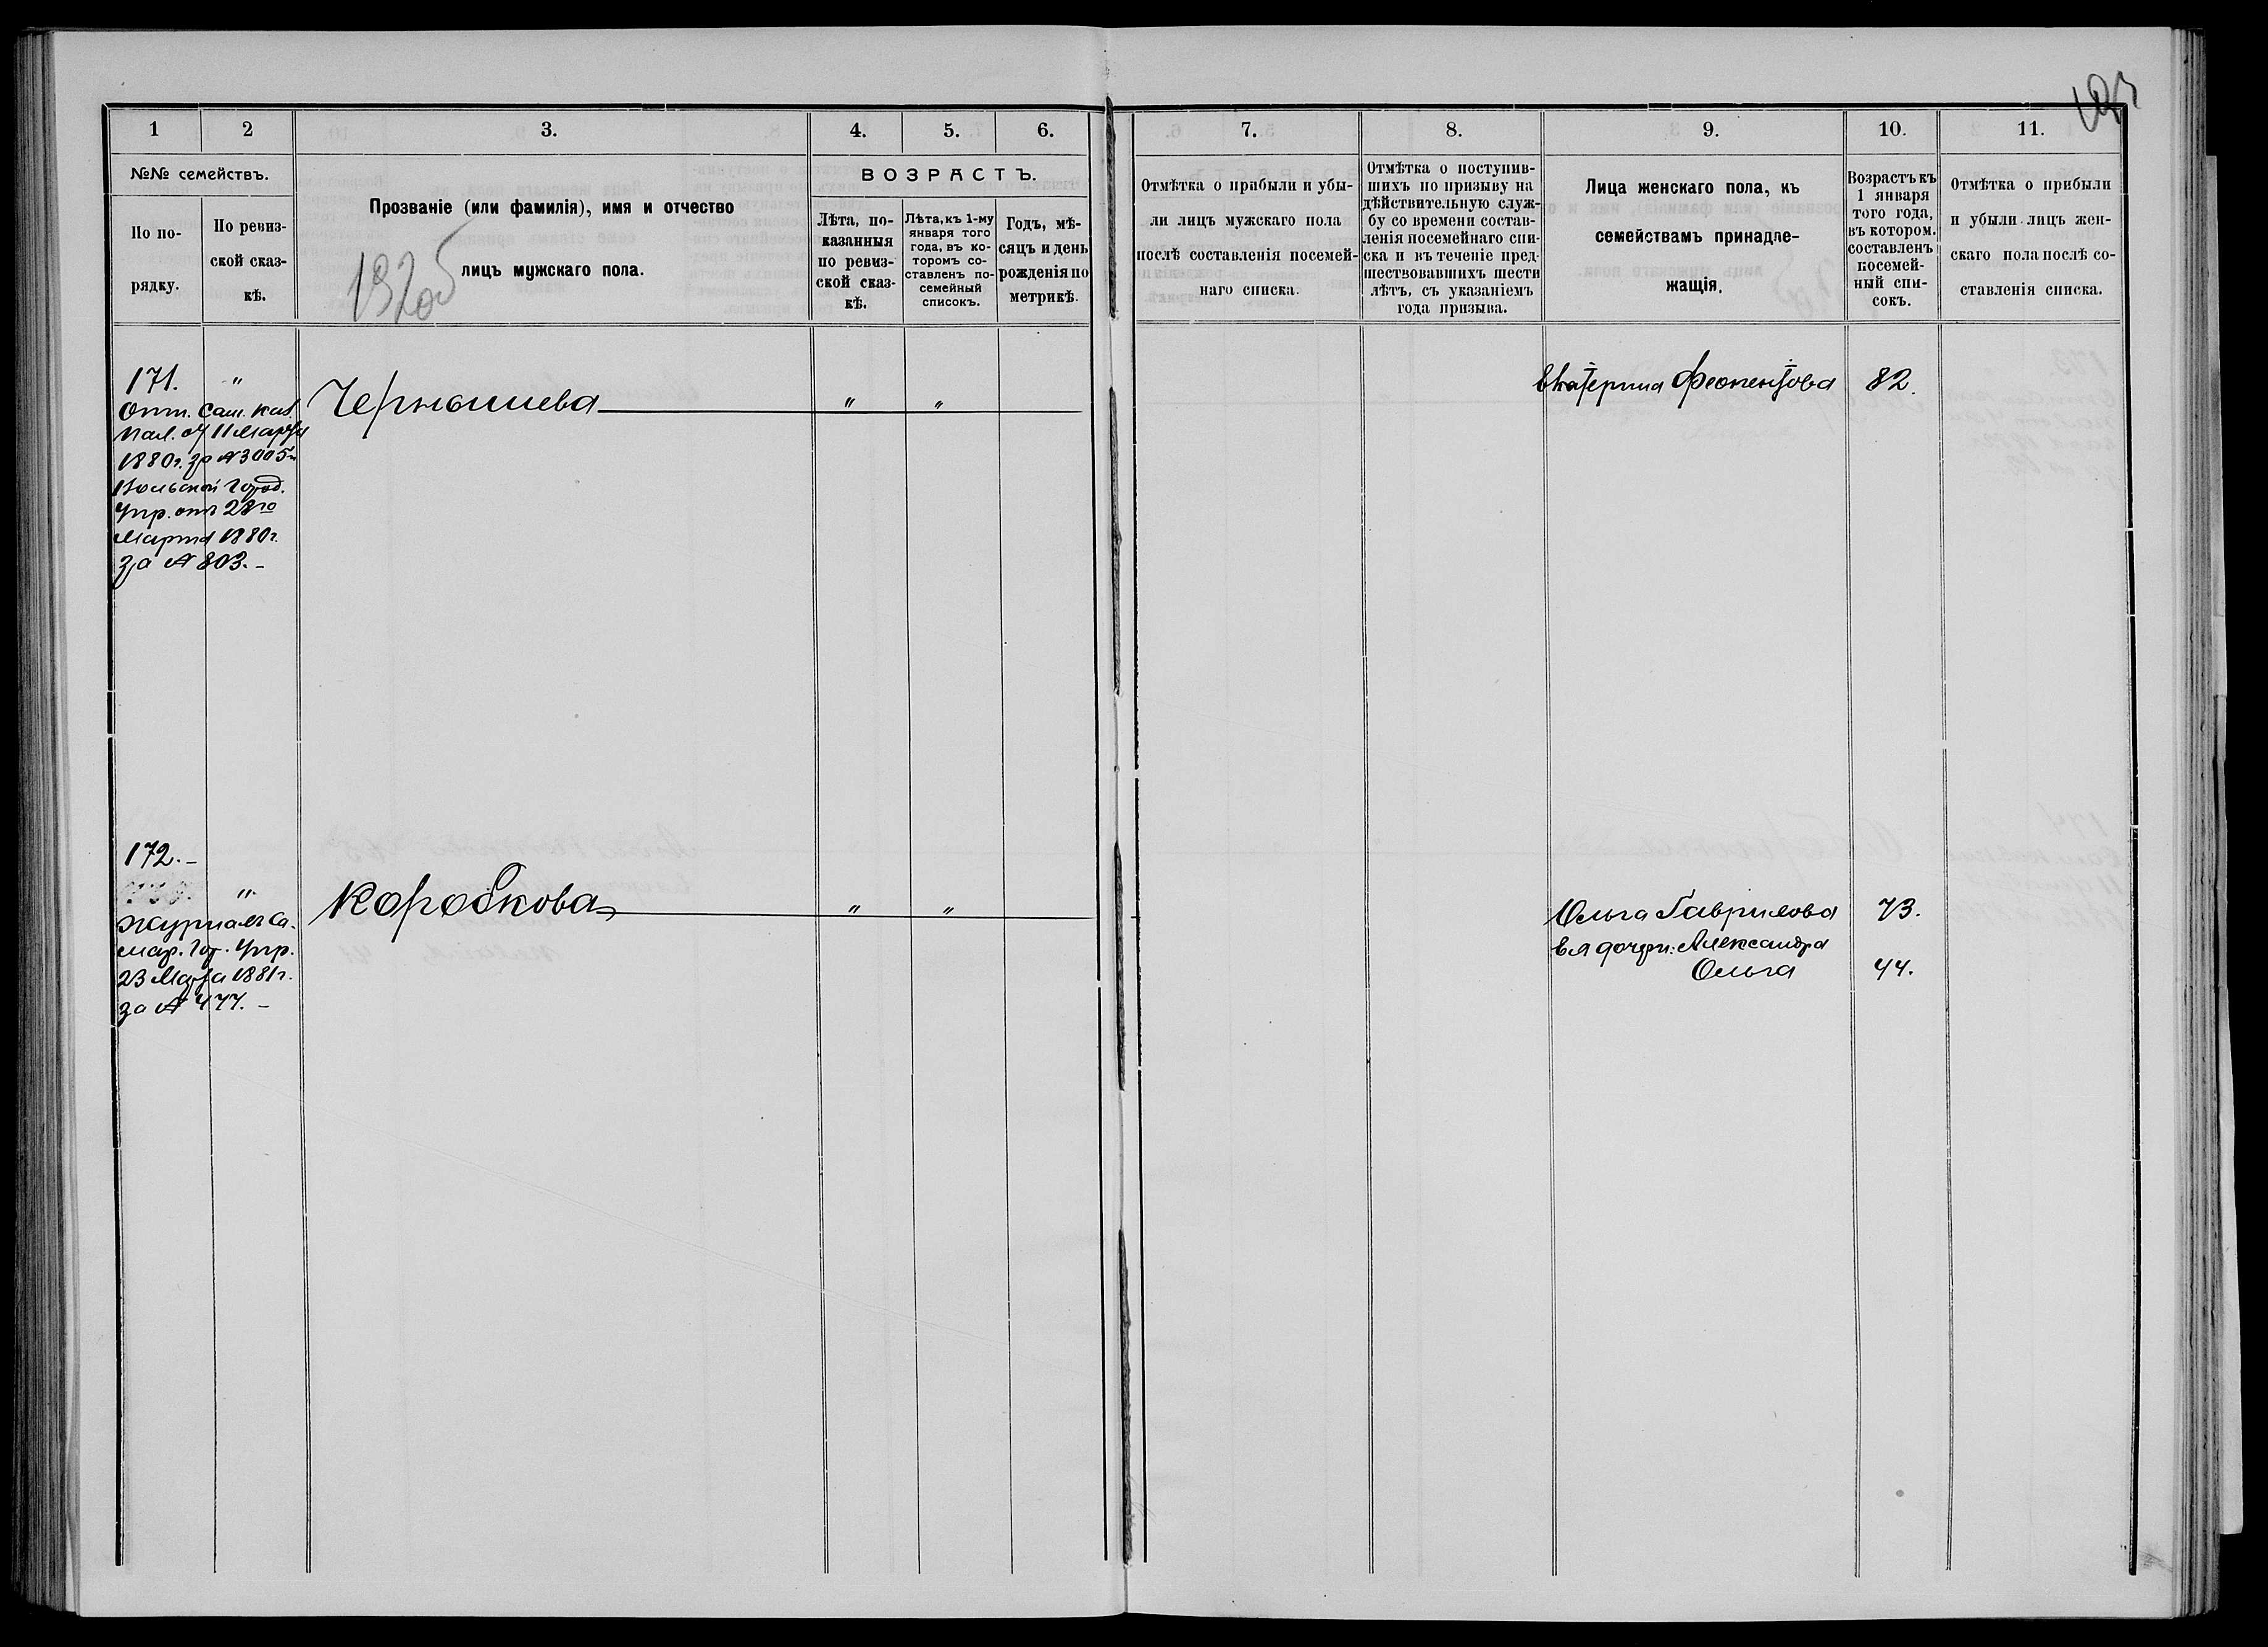 1
2
3.
4.
5.
6.
№№ семействъ.
По по-
рядку.
По ревиз-
ской сказ-
кѣ.
Прозваніе (или фамилія), имя и отчество
лицъ мужскаго пола.
ВОЗРАСТЪ.
Лѣта, по-
казанныя
по ревиз-
ской сказ-
кѣ.
Лѣта, къ 1-му
января того
года, въ ко-
торомъ со-
ставленъ по-
семейный
списокъ.
Годъ, мѣ-
сяцъ и день
рожденія по
метрикѣ.
171. "
Отт. Сам. Каз.
Пал. от 11 Марта
1880 г. за № 3005 и
Вольской Город.
Упр. отъ 28го
Марта 1880 г.
за № 803. -
Чернышева " "
172. -
"
Журналъ Са-
мар. Гор. Упр.
23 Марта 1881 г.
за № 477. -
Коробкова " "
7.
8.
9.
10.
11.
Отмѣтка о прибыли и убы-
ли лицъ мужскаго пола
послѣ составленія посемей-
наго списка.
Отмѣтка о поступив-
шихъ по призыву на
дѣйствительную служ-
бу со времени состав-
ленія посемейнаго спи-
ска и въ теченіе пред-
шествовавшихъ шести
лѣтъ, съ указаніемъ
года призыва.
Лица женскаго пола, къ
семействамъ принадле-
жащія.
Возрастъ къ
1 января
того года,
въ котором.
составленъ
посемей-
ный спи-
сокъ.
Отмѣтка о прибыли
и убыли лицъ жен-
скаго пола послѣ со-
ставленія списка.
Екатерина Феопентова 82.
Ольга Гаврилова 73.
Ея дочери: Александра
Ольга 44.